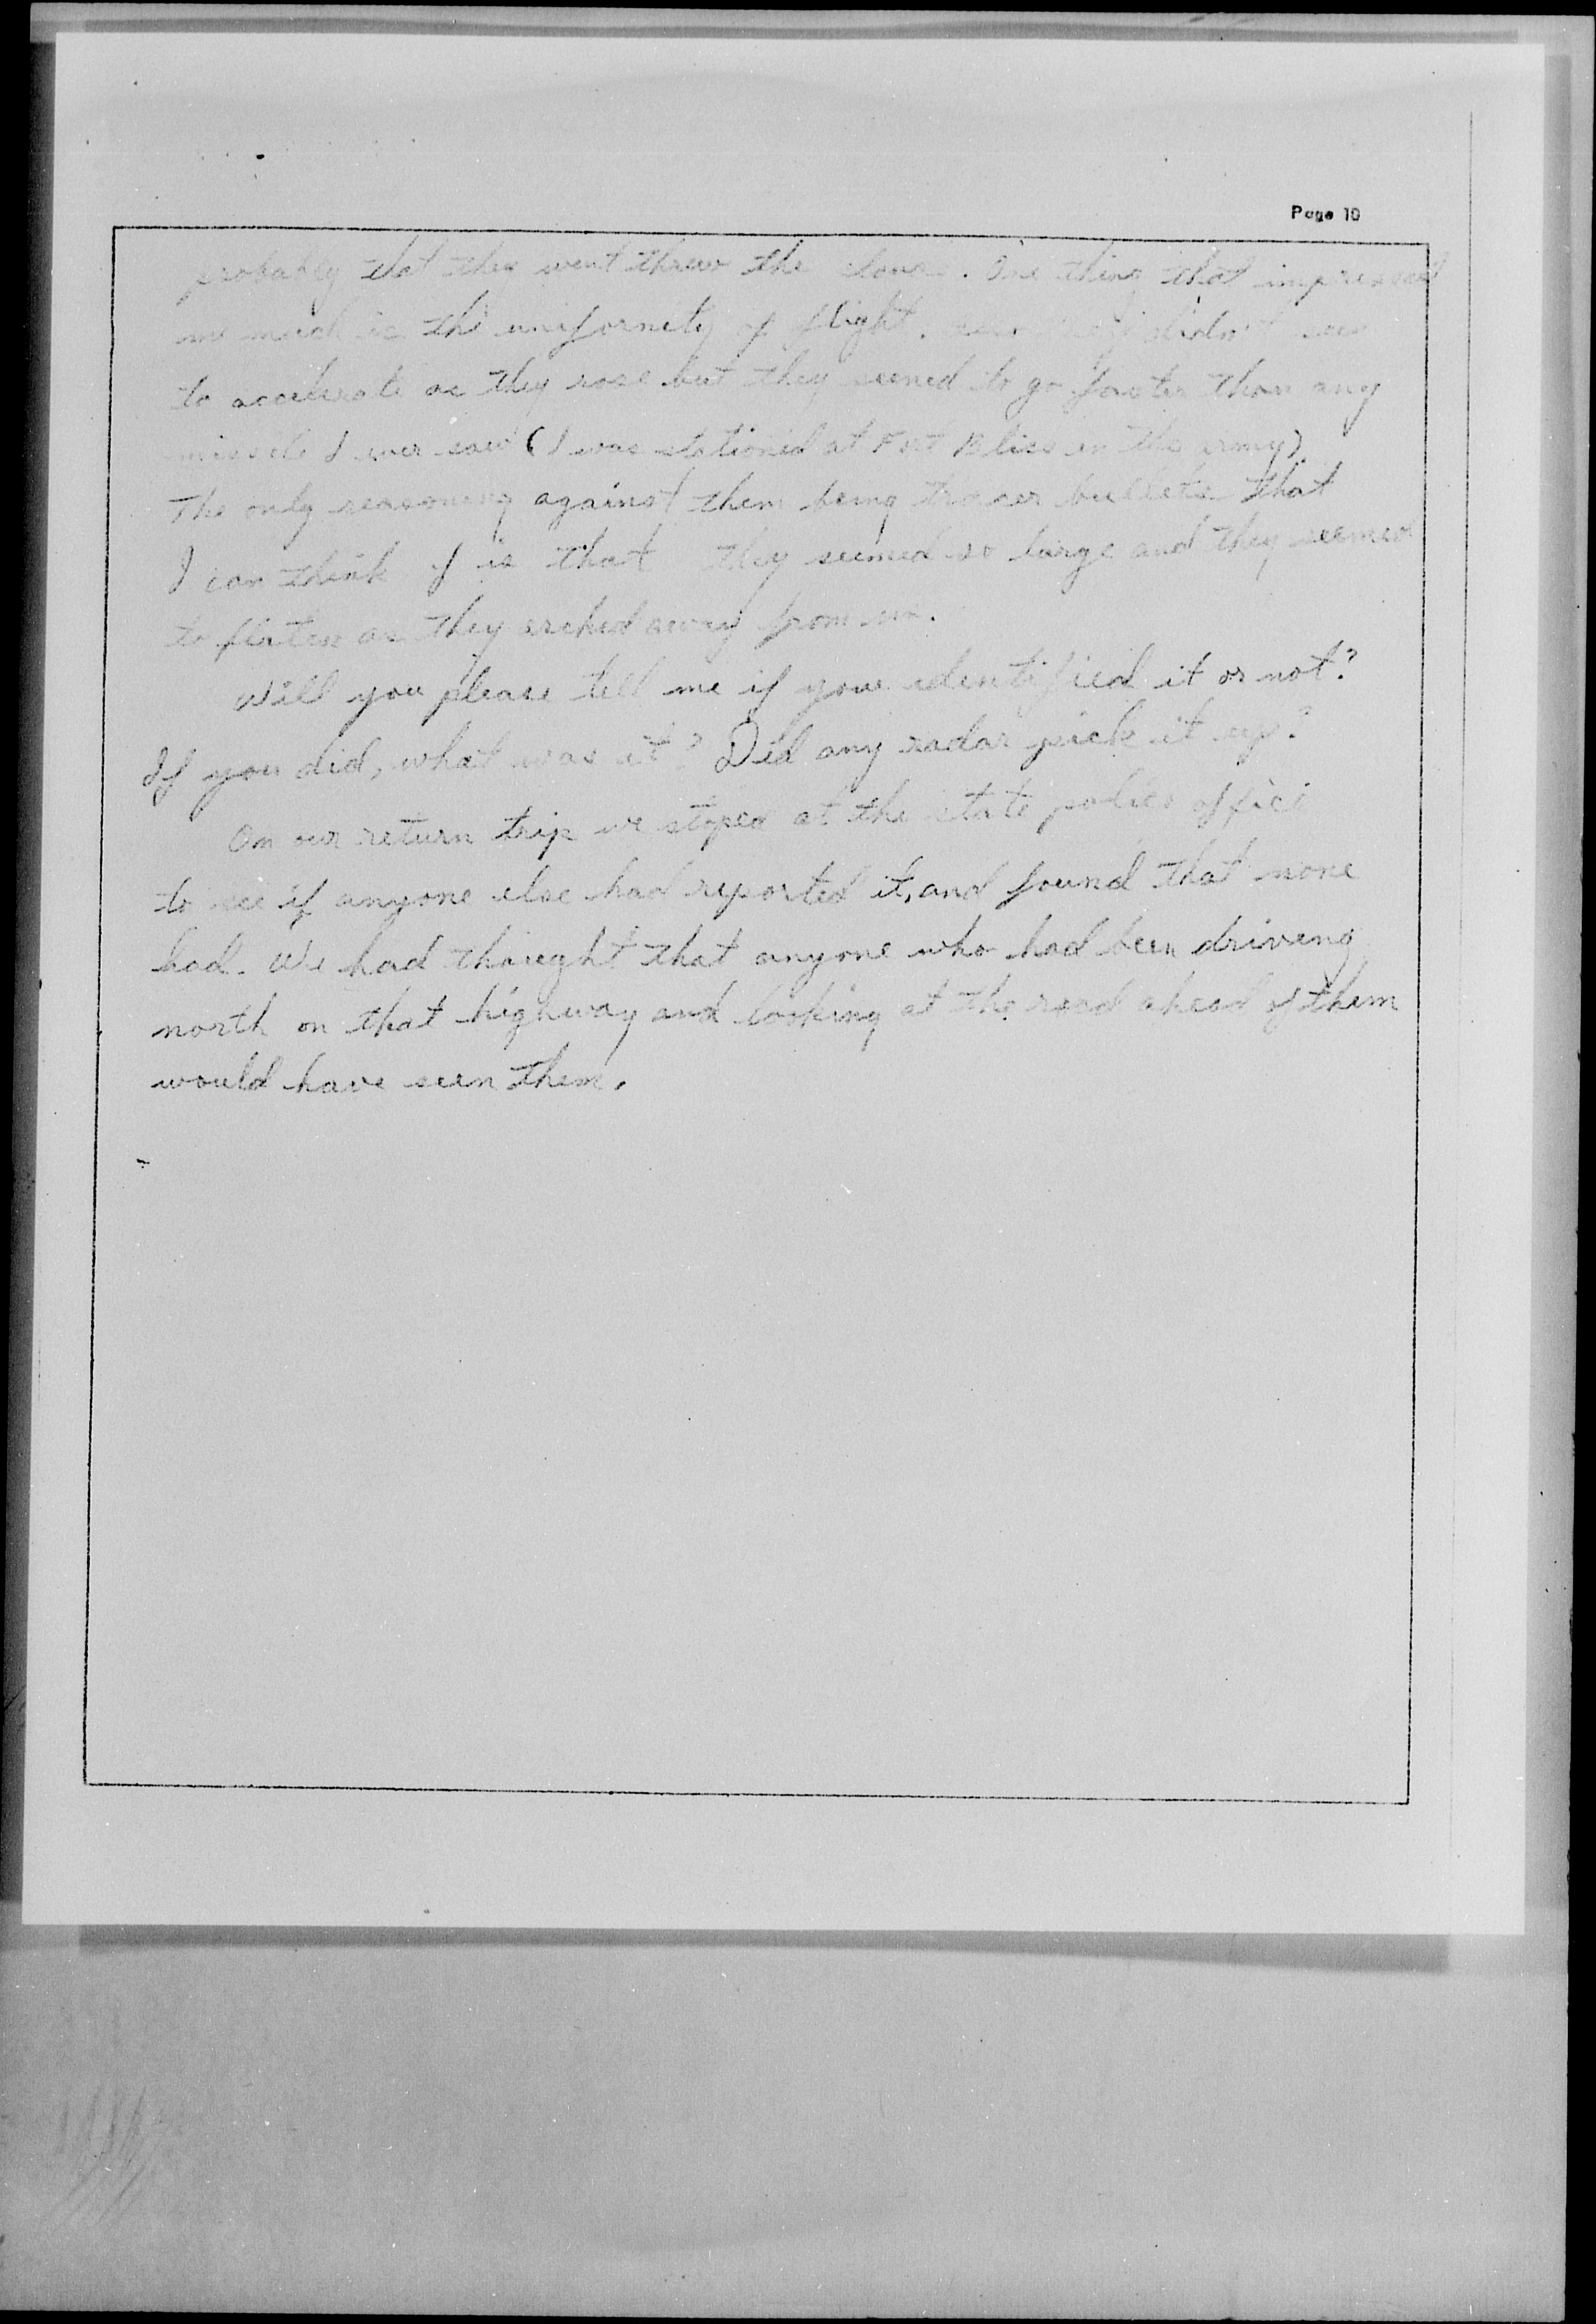 Page 10
probably that they went threw the. One thing that impressed
me much is the uniformity of flight. didn't
to accelerate as they rose but they seemed to go faster than any
missile I ever saw (I was stationed at Fort Bliss in the army).
The only reasoning against them being tracer bullets that
I can think of is that they seemed so large and they seemed
to flaten as they arched away from me.
Will you please tell me if you identified it or not?
If you did, what was it? Did any radar pick it up?
On our return trip we stoped at the state police office
to see if anyone else had reported it, and found that none
had. We had thought that anyone who had been driving
north on that highway and looking at the road ahead of them
would have seen them.